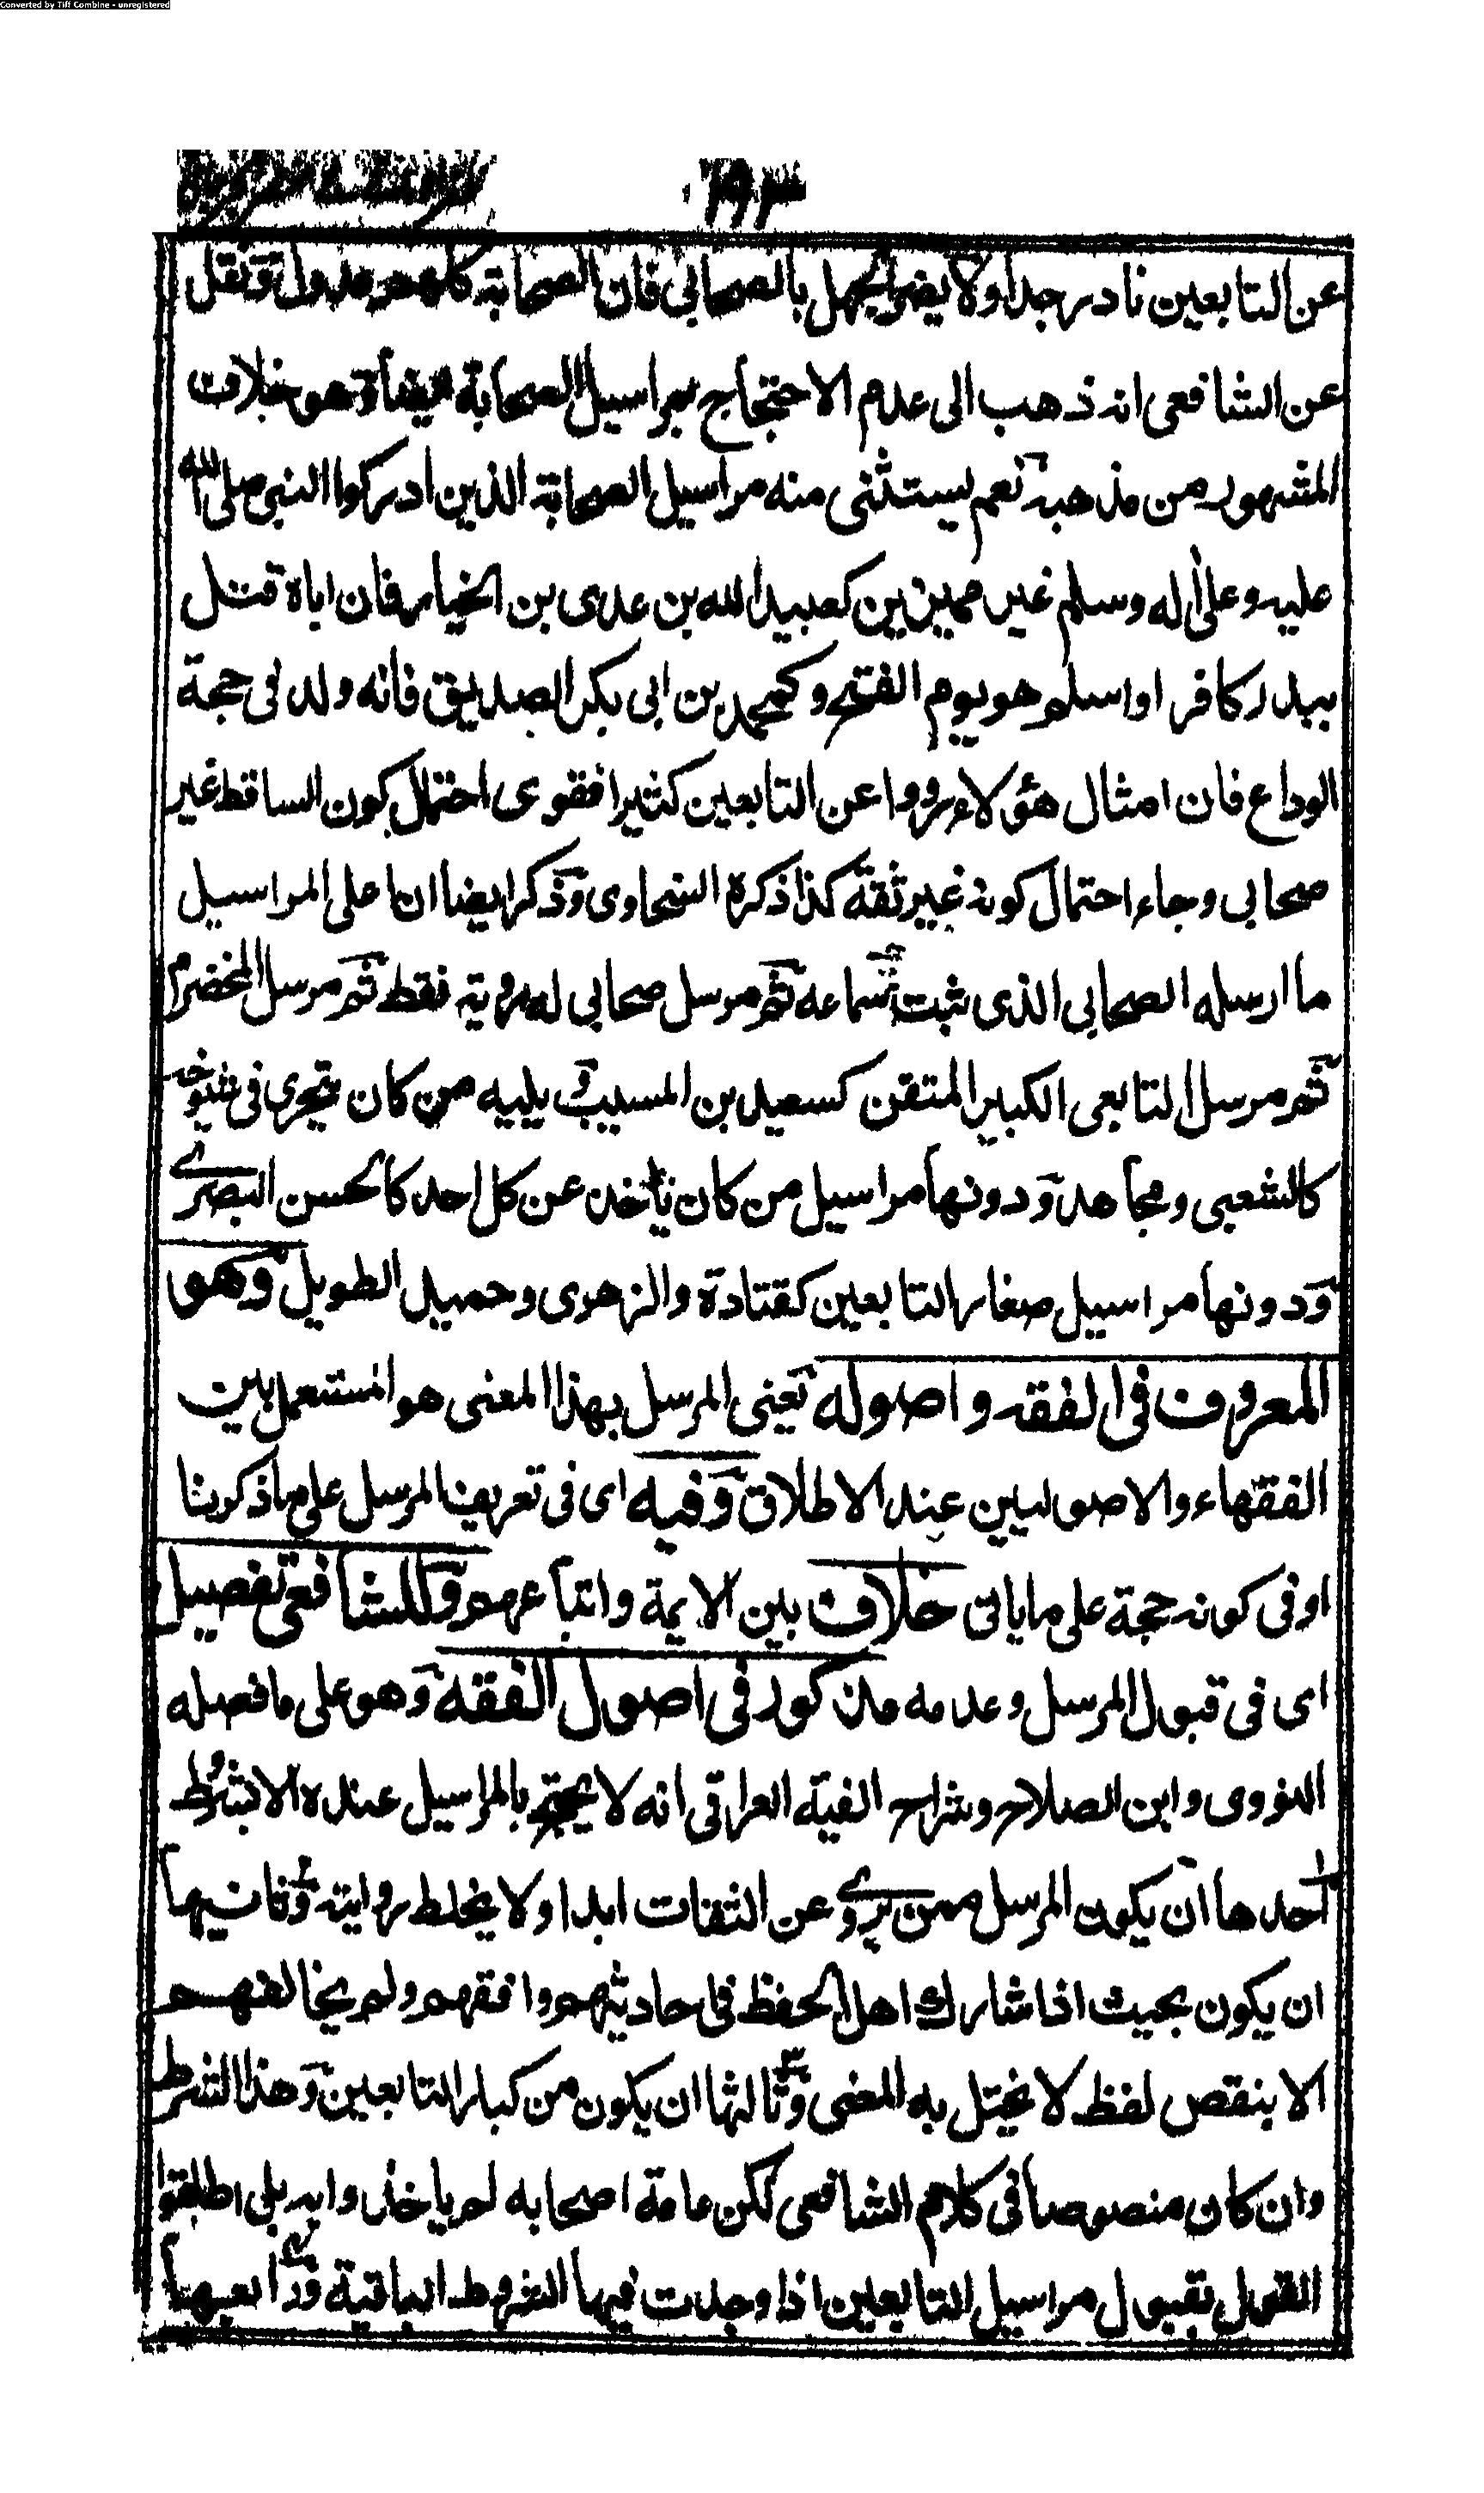 Converted by Tiff Combine - unregistered
١٩٣
عن التابعين نادر جدا ولا يضر الجهل بالصحابي فان الصحابة كلهم عدول ونقل
عن الشافعي انه ذهب الى عدم الاحتجاج بمراسيل الصحابة ايضا وهو خلاف
المشهور من مذهبه نعم يستثنى منه مراسيل الصحابة الذين ادركوا النبي صلى الله
عليه وعلى اله وسلم غير مميزين كعبيد الله بن عدى بن الخيار فان اباه قتل
ببدر كافرا واسلم هو يوم الفتح وكمحمد بن ابى بكر الصديق فانه ولد فى حجة
الوداع فان امثال هؤلاء رووا عن التابعين كثيرا فقوى احتمال كون الساقط غير
صحابى وجاء احتمال كونه غير ثقة كذا ذكره السخاوى وذكر ايضا ان اعلى المراسيل
ما ارسله الصحابى الذى ثبت سماعه ثم مرسل صحابى له روية فقط ثم مرسل المخضرم
ثم مرسل التابعى الكبير المتقن كسعيد بن المسيب و يليه من كان يتحرى فى شيوخه
كالشعبى ومجاهد ودونها مراسيل من كان ياخذ عن كل احد كالحسن البصرے
ودونها مراسيل صغار التابعين كقتادة والزهرى وحميد الطويل وهو
المعروف فى الفقه واصوله يعنى المرسل بهذا المعنى هو المستعمل بين
الفقهاء والاصوليين عند الاطلاق وفيه اى فى تعريف المرسل على ما ذكرنا
او فى كونه حجة على ماياتى خلاف بين الايمة واتباعهم وللشافعى تفصيل
اى فى قبول المرسل وعدمه مذكور فى اصول الفقه وهو على ما فصله
النووى وابن الصلاح وشراح الفية العراقى انه لا يحتج بالمراسيل عنده الا بشروط
احدها ان يكون المرسل ممن يروے عن الثقات ابدا ولا يخلط روايته وثانيها
ان يكون بحيث اذا شارك اهل الحفظ فى احاديثهم وافقهم ولم يخالفهم
الا بنقص لفظ لا يختل به المعنى وثالثها ان يكون من كبار التابعين وهذا الشرط
وان كان منصوصا فى كلام الشافعى لكن عامة اصحابه لم ياخذوا به بل اطلقوا
القول بقبول مراسيل التابعين اذا وجدت فيها الشروط الباقية ورابعها